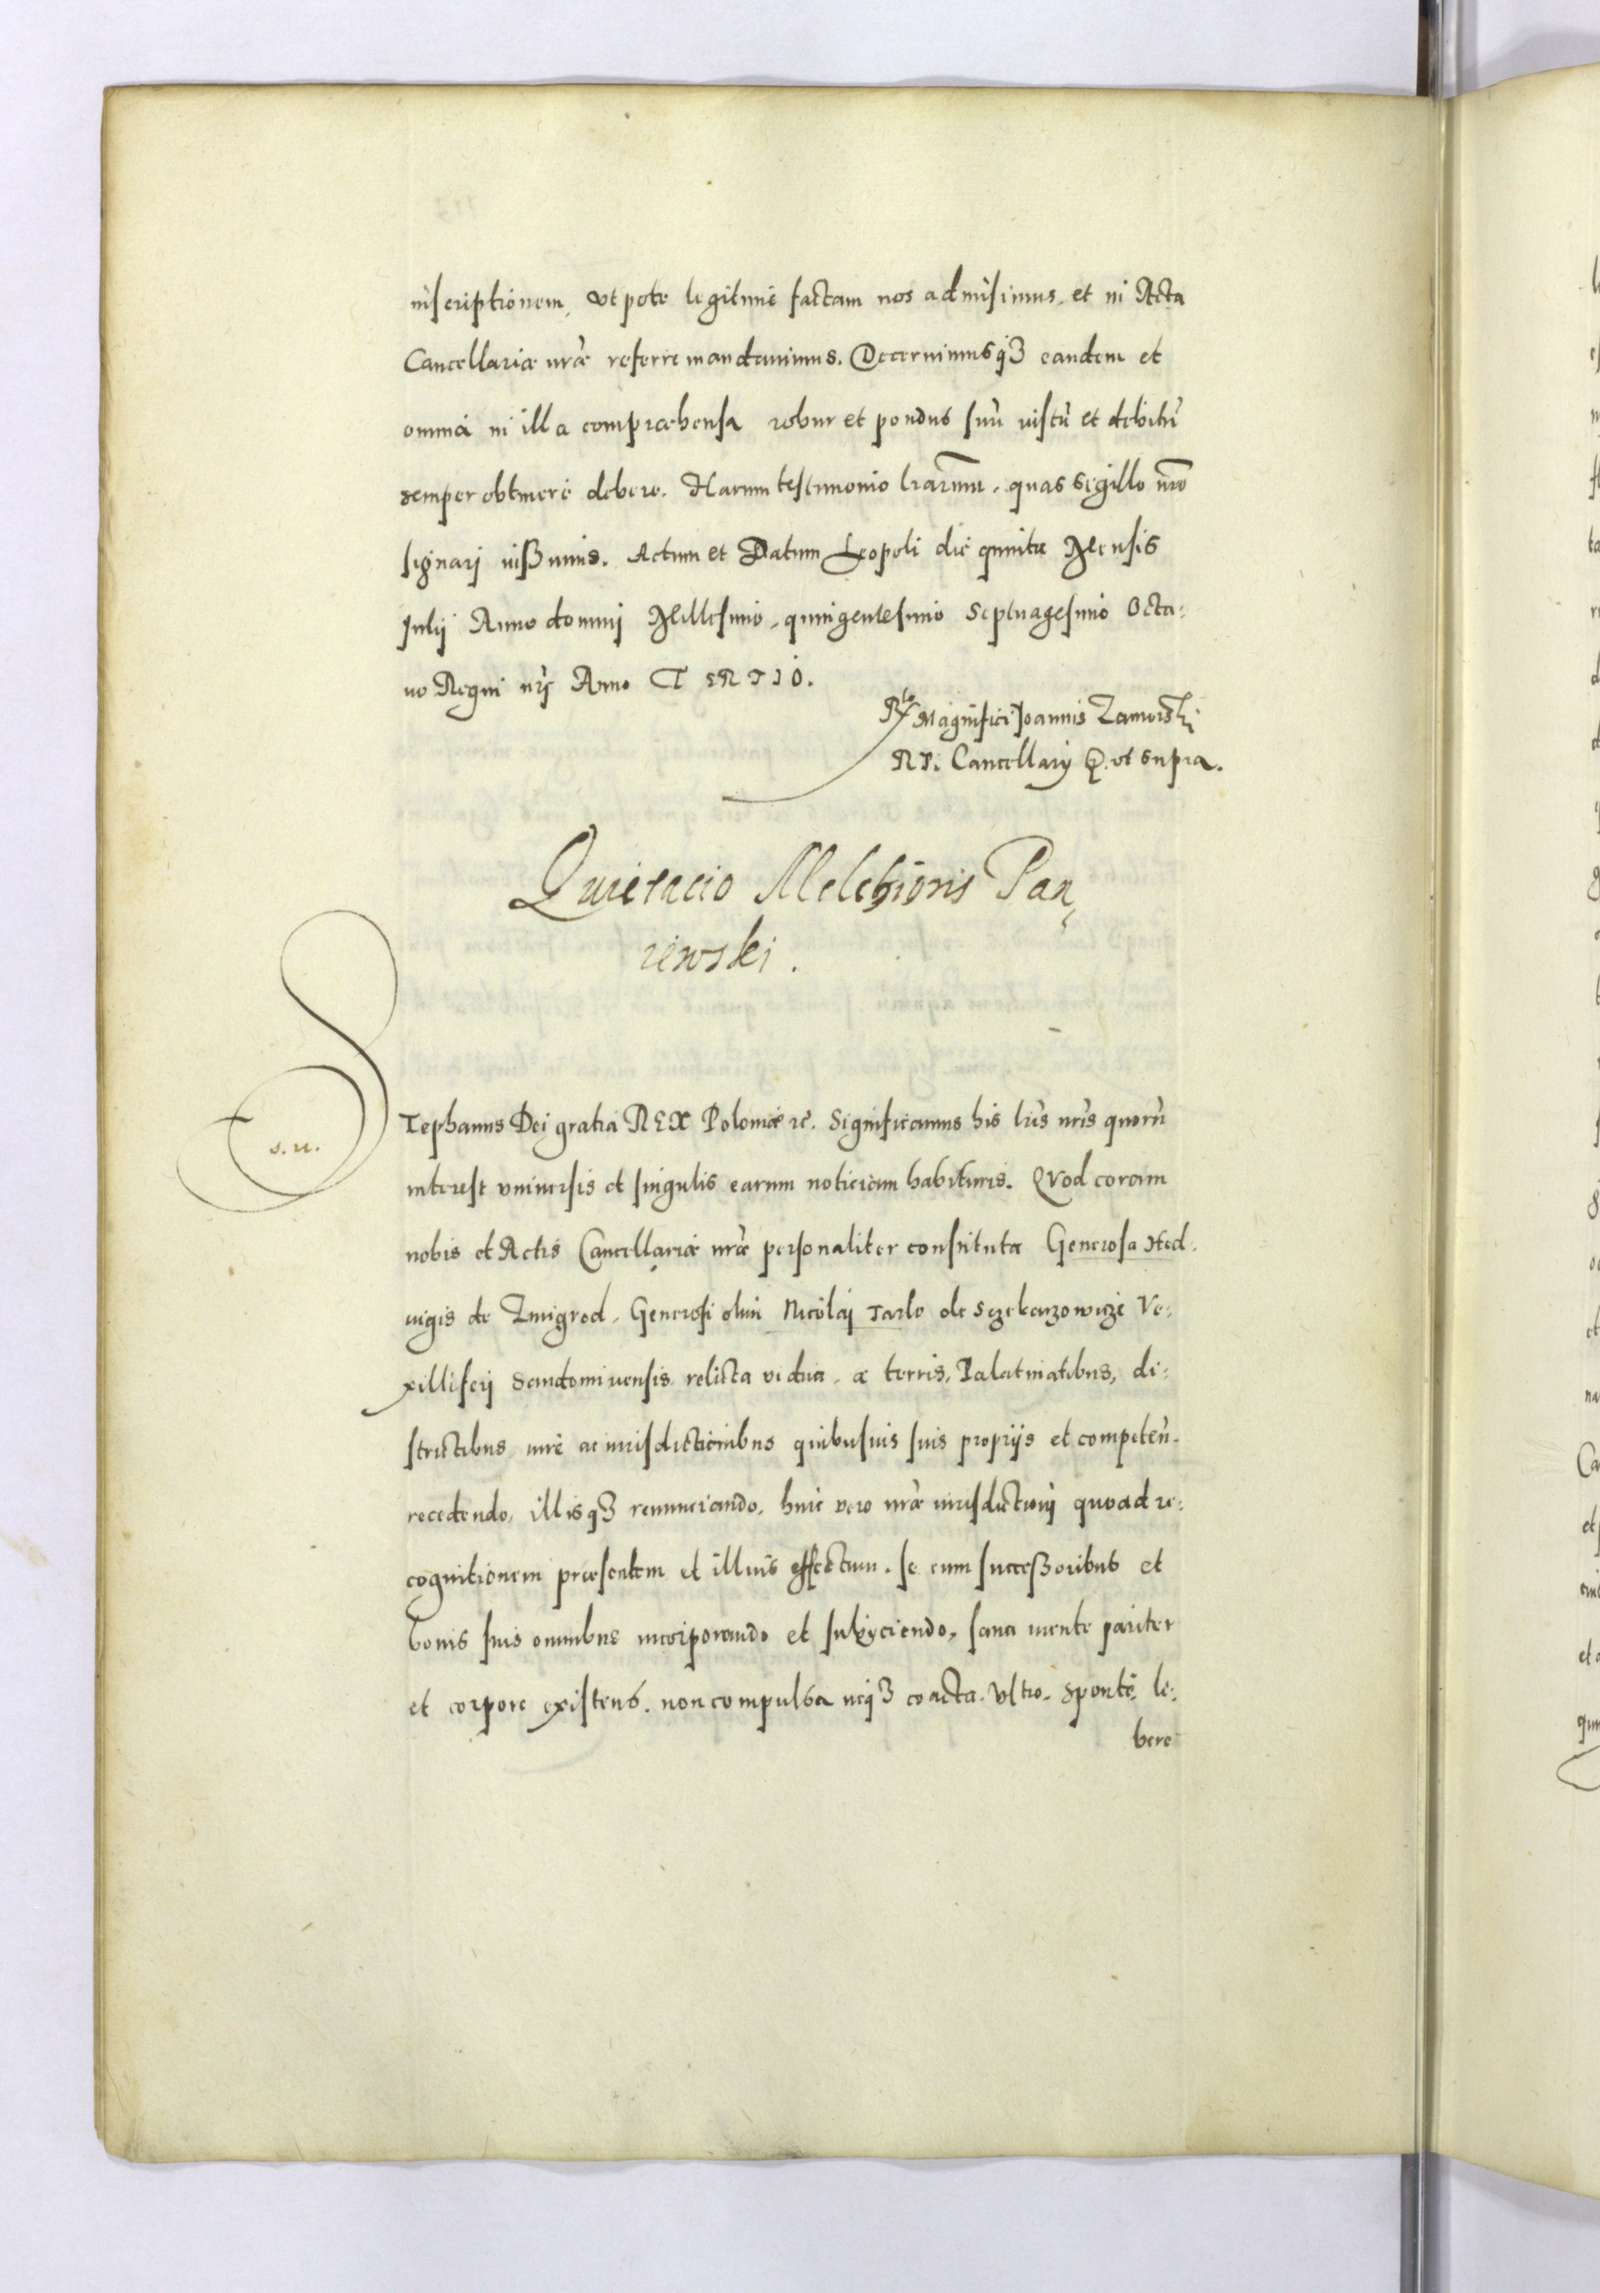 inscriptionem, vt pote legitime factam nos admisimus, et in Acta
Cancellariæ nr̃æ referre mandauimus. Decernimusq3 eandem et
omnia in illa compræhensa robur et pondus suũ iustũ et debitũ
semper obtinere debere. Harum testimonio l̃rarum, quas sigillo nr̃o
signarj iußimus. Actum et Datum Leopoli die quinta Mensis
Julij Anno dominj Millesimo, quingentesimo Septuagesimo Octa:
uo Regni nr̃j Anno TERTIO.
R̃lo Magnifici Joannis Zamoiskj
R P. Cancellarij &. vt supra.
Quietacio Melchioris Pan
iewski.
s. u.
Stephanus Dej gratia REX Poloniæ &c. Significamus his l̃ris nr̃is quorũ
interest vniuersis et singulis earum noticiam habituris. QVod coram
nobis et Actis Cancellariæ nr̃æ personaliter constituta Generosa Hed:
uigis de Zmigrod, Generosi olim Nicolaj Tarlo de Sczekarzowicze Ve:
xilliferj Sandomiriensis relicta vidua, a terris, Palatinatibus, di:
strictibus, iure ac iurisdictionibus quibusuis suis proprijs et competeñ.
recedendo, illisq3 renunciando, huic vero nr̃æ iurisdictionj quoad re:
cognitionem præsentem et illius effectum, se cum succeßoribus et
bonis suis omnibus incorporando et subijciendo, sana mente pariter
et corpore existens, non compulsa neq3 coacta, Vltro, sponte, li:
bere